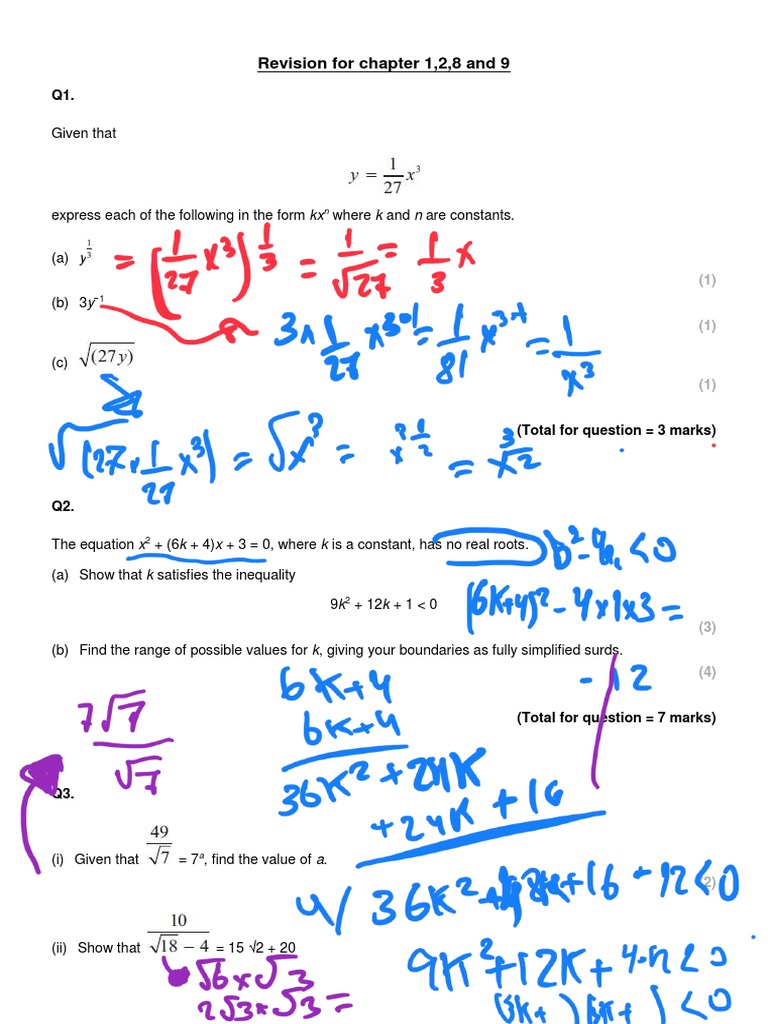 Revision for chapter 1,2,8 and 9
Q1.
Given that
y = 1/27 x³
express each of the following in the form kxⁿ where k and n are constants.
(a) y^(1/3) = (1/27 x³)^(1/3) = 1/√27 = 1/3 x
(1)
(b) 3y⁻¹
3 x 1/27 x^(3·-1) = 1/81 x^(3-1) = 1/x³
(1)
(c) √(27y)
(1)
(Total for question = 3 marks)
√(27 x 1/27 x³) = √x³ = x^(3·1/2) = x^(3/2)
Q2.
The equation x² + (6k + 4)x + 3 = 0, where k is a constant, has no real roots.
(a) Show that k satisfies the inequality
9k² + 12k + 1 < 0
(6k+4)² - 4x1x3 =
(3)
(b) Find the range of possible values for k, giving your boundaries as fully simplified surds.
(4)
- 12
6k+4
6k+4
(Total for question = 7 marks)
36k² + 24k
+ 24k + 16
7√7
√7
Q3.
(i) Given that 49/√7 = 7ᵃ, find the value of a.
(2)
4/ 36k² + 48k + 16 - 12 < 0
(ii) Show that 10/(√18 − 4) = 15 √2 + 20
9k² + 12k +
√6 x √3
2√3 x √3 =